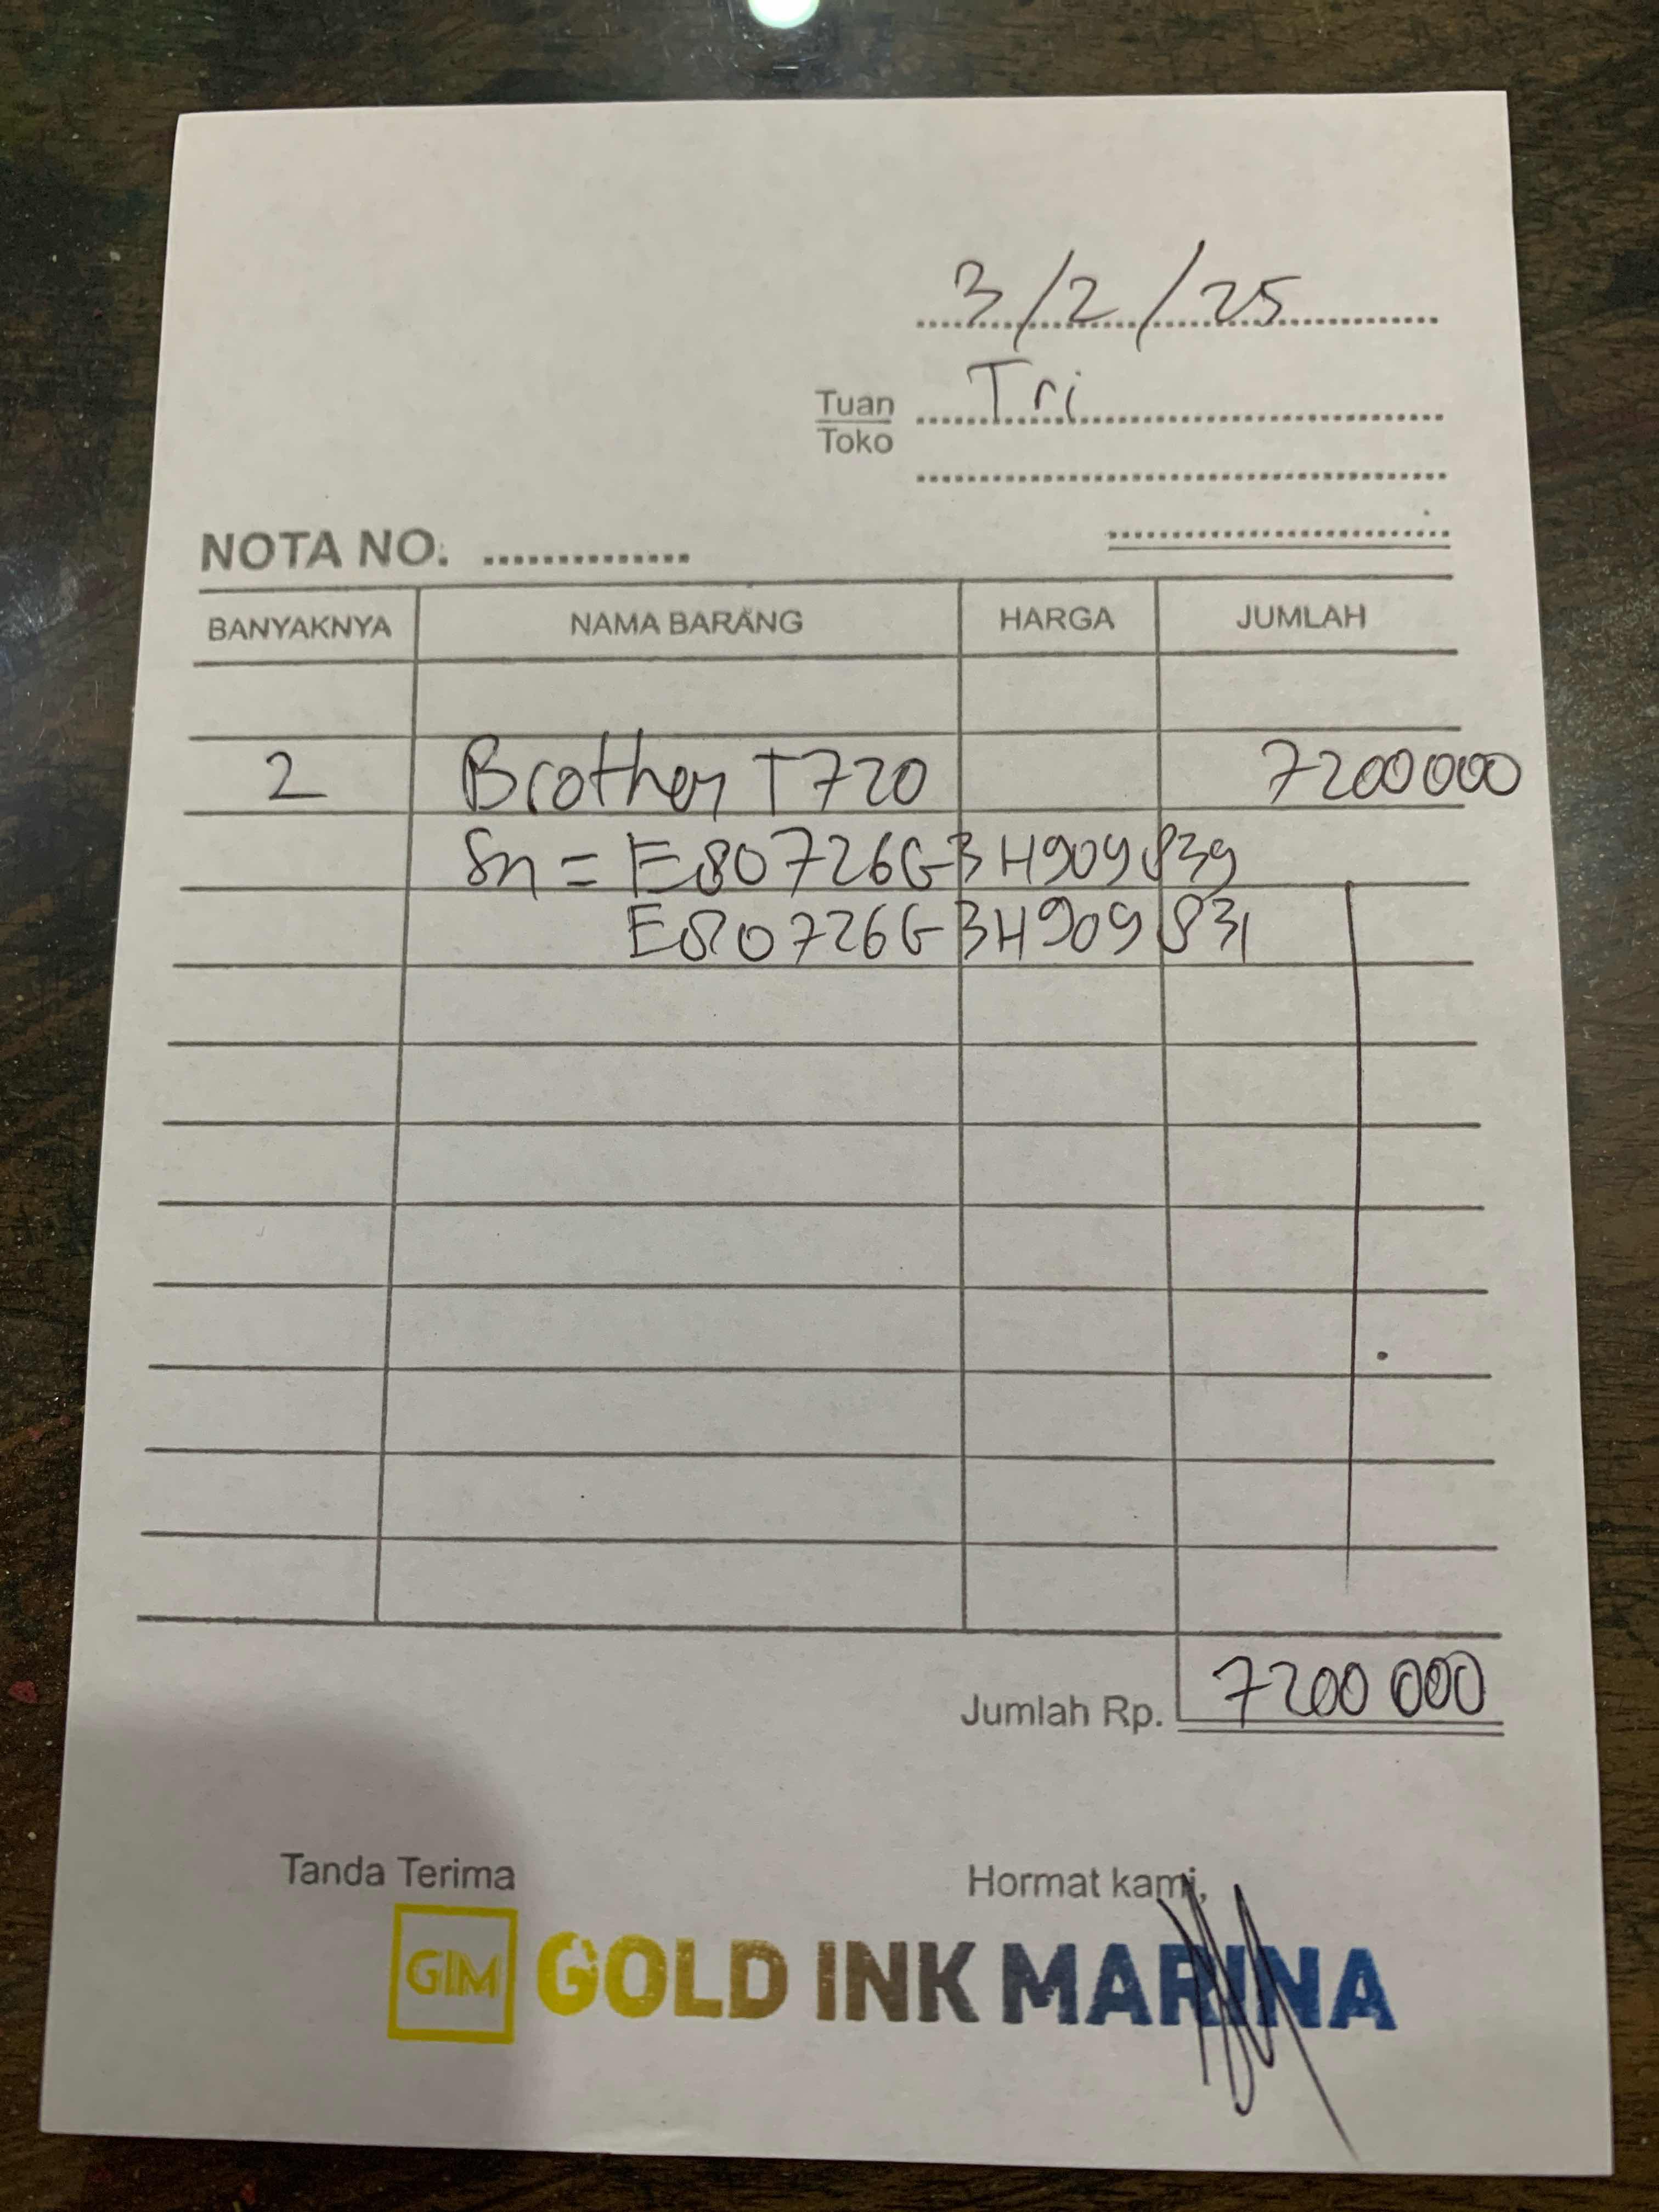 3/2/25
Tuan Tri
Toko
NOTA NO. ..............
BANYAKNYA NAMA BARANG HARGA JUMLAH
2 Brother T720 7200000
Sn = E80726G3H909839
E80726G3H909831
Jumlah Rp. 7200 000
Tanda Terima Hormat kami,
GIM GOLD INK MARINA